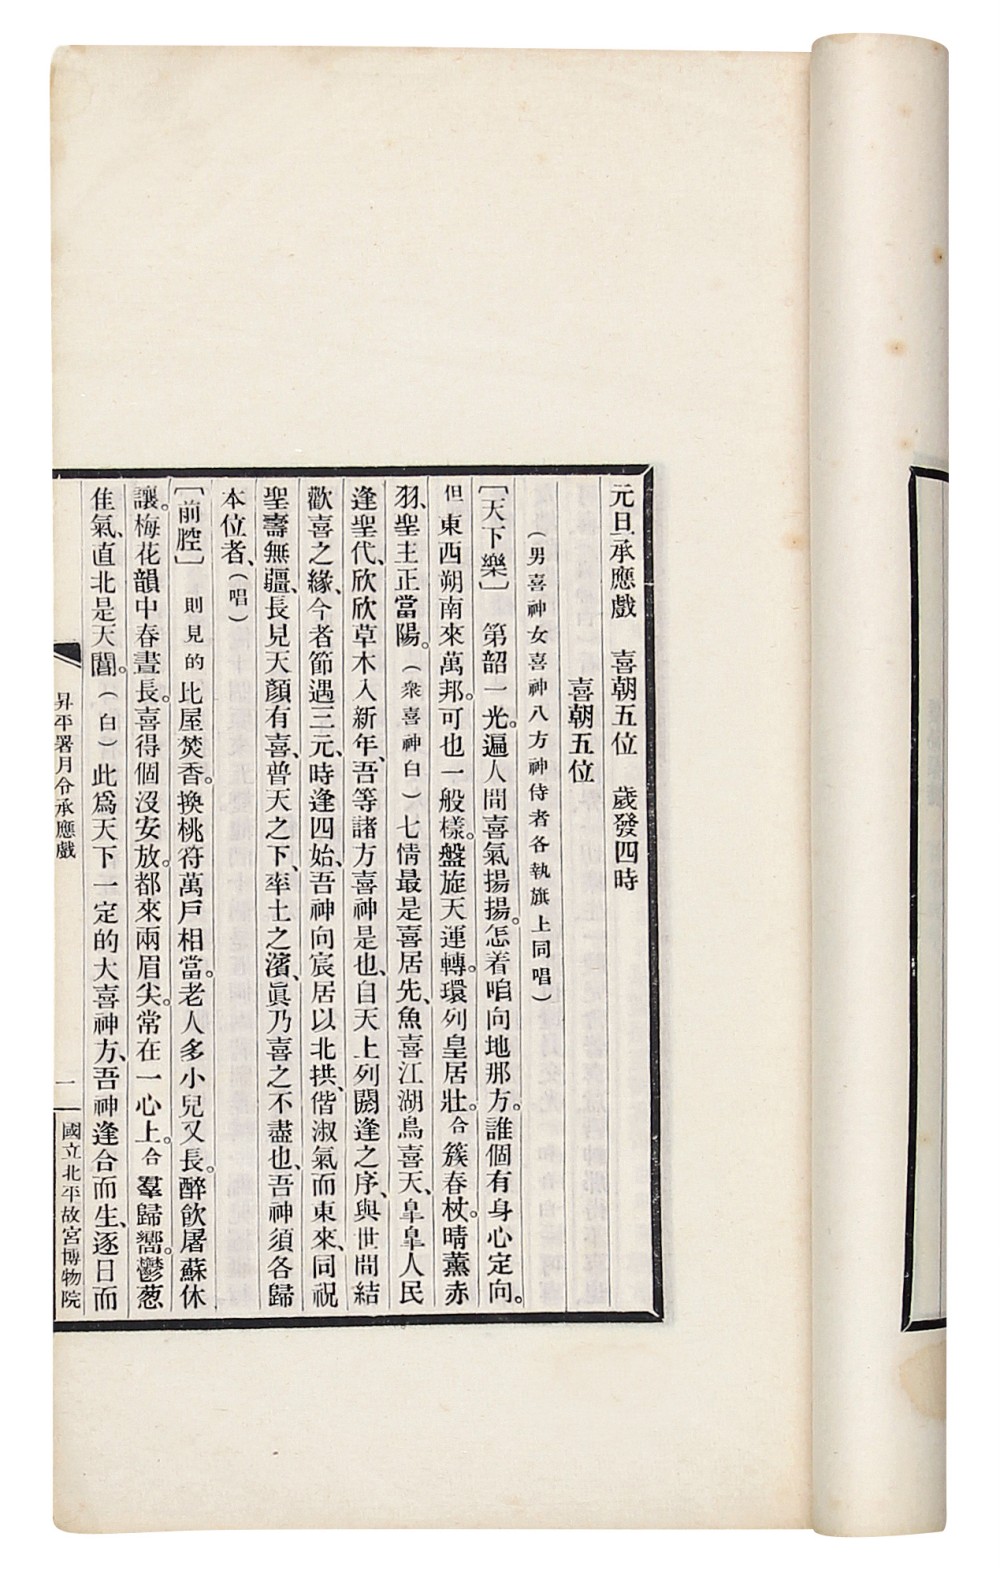 元旦承應戲　喜朝五位　歲發四時
喜朝五位
（男喜神女喜神八方神侍者各執旗上同唱）
［天下樂］　第韶一光。遍人間喜氣揚揚。怎着咱向地那方。誰個有身心定向。
但東西朔南來萬邦。可也一般樣。盤旋天運轉。環列皇居壯。合簇春杖。晴薰赤
羽、聖主正當陽。（衆喜神白）七情最是喜居先、魚喜江湖鳥喜天、皐皐人民
逢聖代、欣欣草木入新年、吾等諸方喜神是也、自天上列闕逢之序、與世間結
歡喜之緣、今者節遇三元、時逢四始、吾神向宸居以北拱、偕淑氣而東來、同祝
聖壽無疆、長見天顏有喜、普天之下、率土之濱、眞乃喜之不盡也、吾神須各歸
本位者、（唱）
［前腔］　則見的比屋焚香。換桃符萬戶相當。老人多小兒又長。醉飲屠蘇休
讓。梅花韻中春晝長。喜得個沒安放。都來兩眉尖。常在一心上。合羣歸嚮。鬱葱
佳氣、直北是天閶。（白）此爲天下一定的大喜神方、吾神逢合而生、逐日而
昇平署月令承應戲
一
國立北平故宮博物院